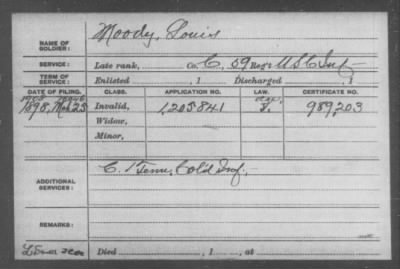 NAME OF SOLDIER: Moody, Louis
SERVICE: Late rank, Co. C, 59 Reg't U S C Inf
TERM OF SERVICE: Enlisted , 1 Discharged , 1
DATE OF FILING. CLASS. APPLICATION NO. LAW. CERTIFICATE NO.
1898, Mch 25 Invalid, 1,205841 989,203
Widow,
Minor,
ADDITIONAL SERVICES: C. 1 Tenn. Col'd Inf.
REMARKS:
Died , 1 , at